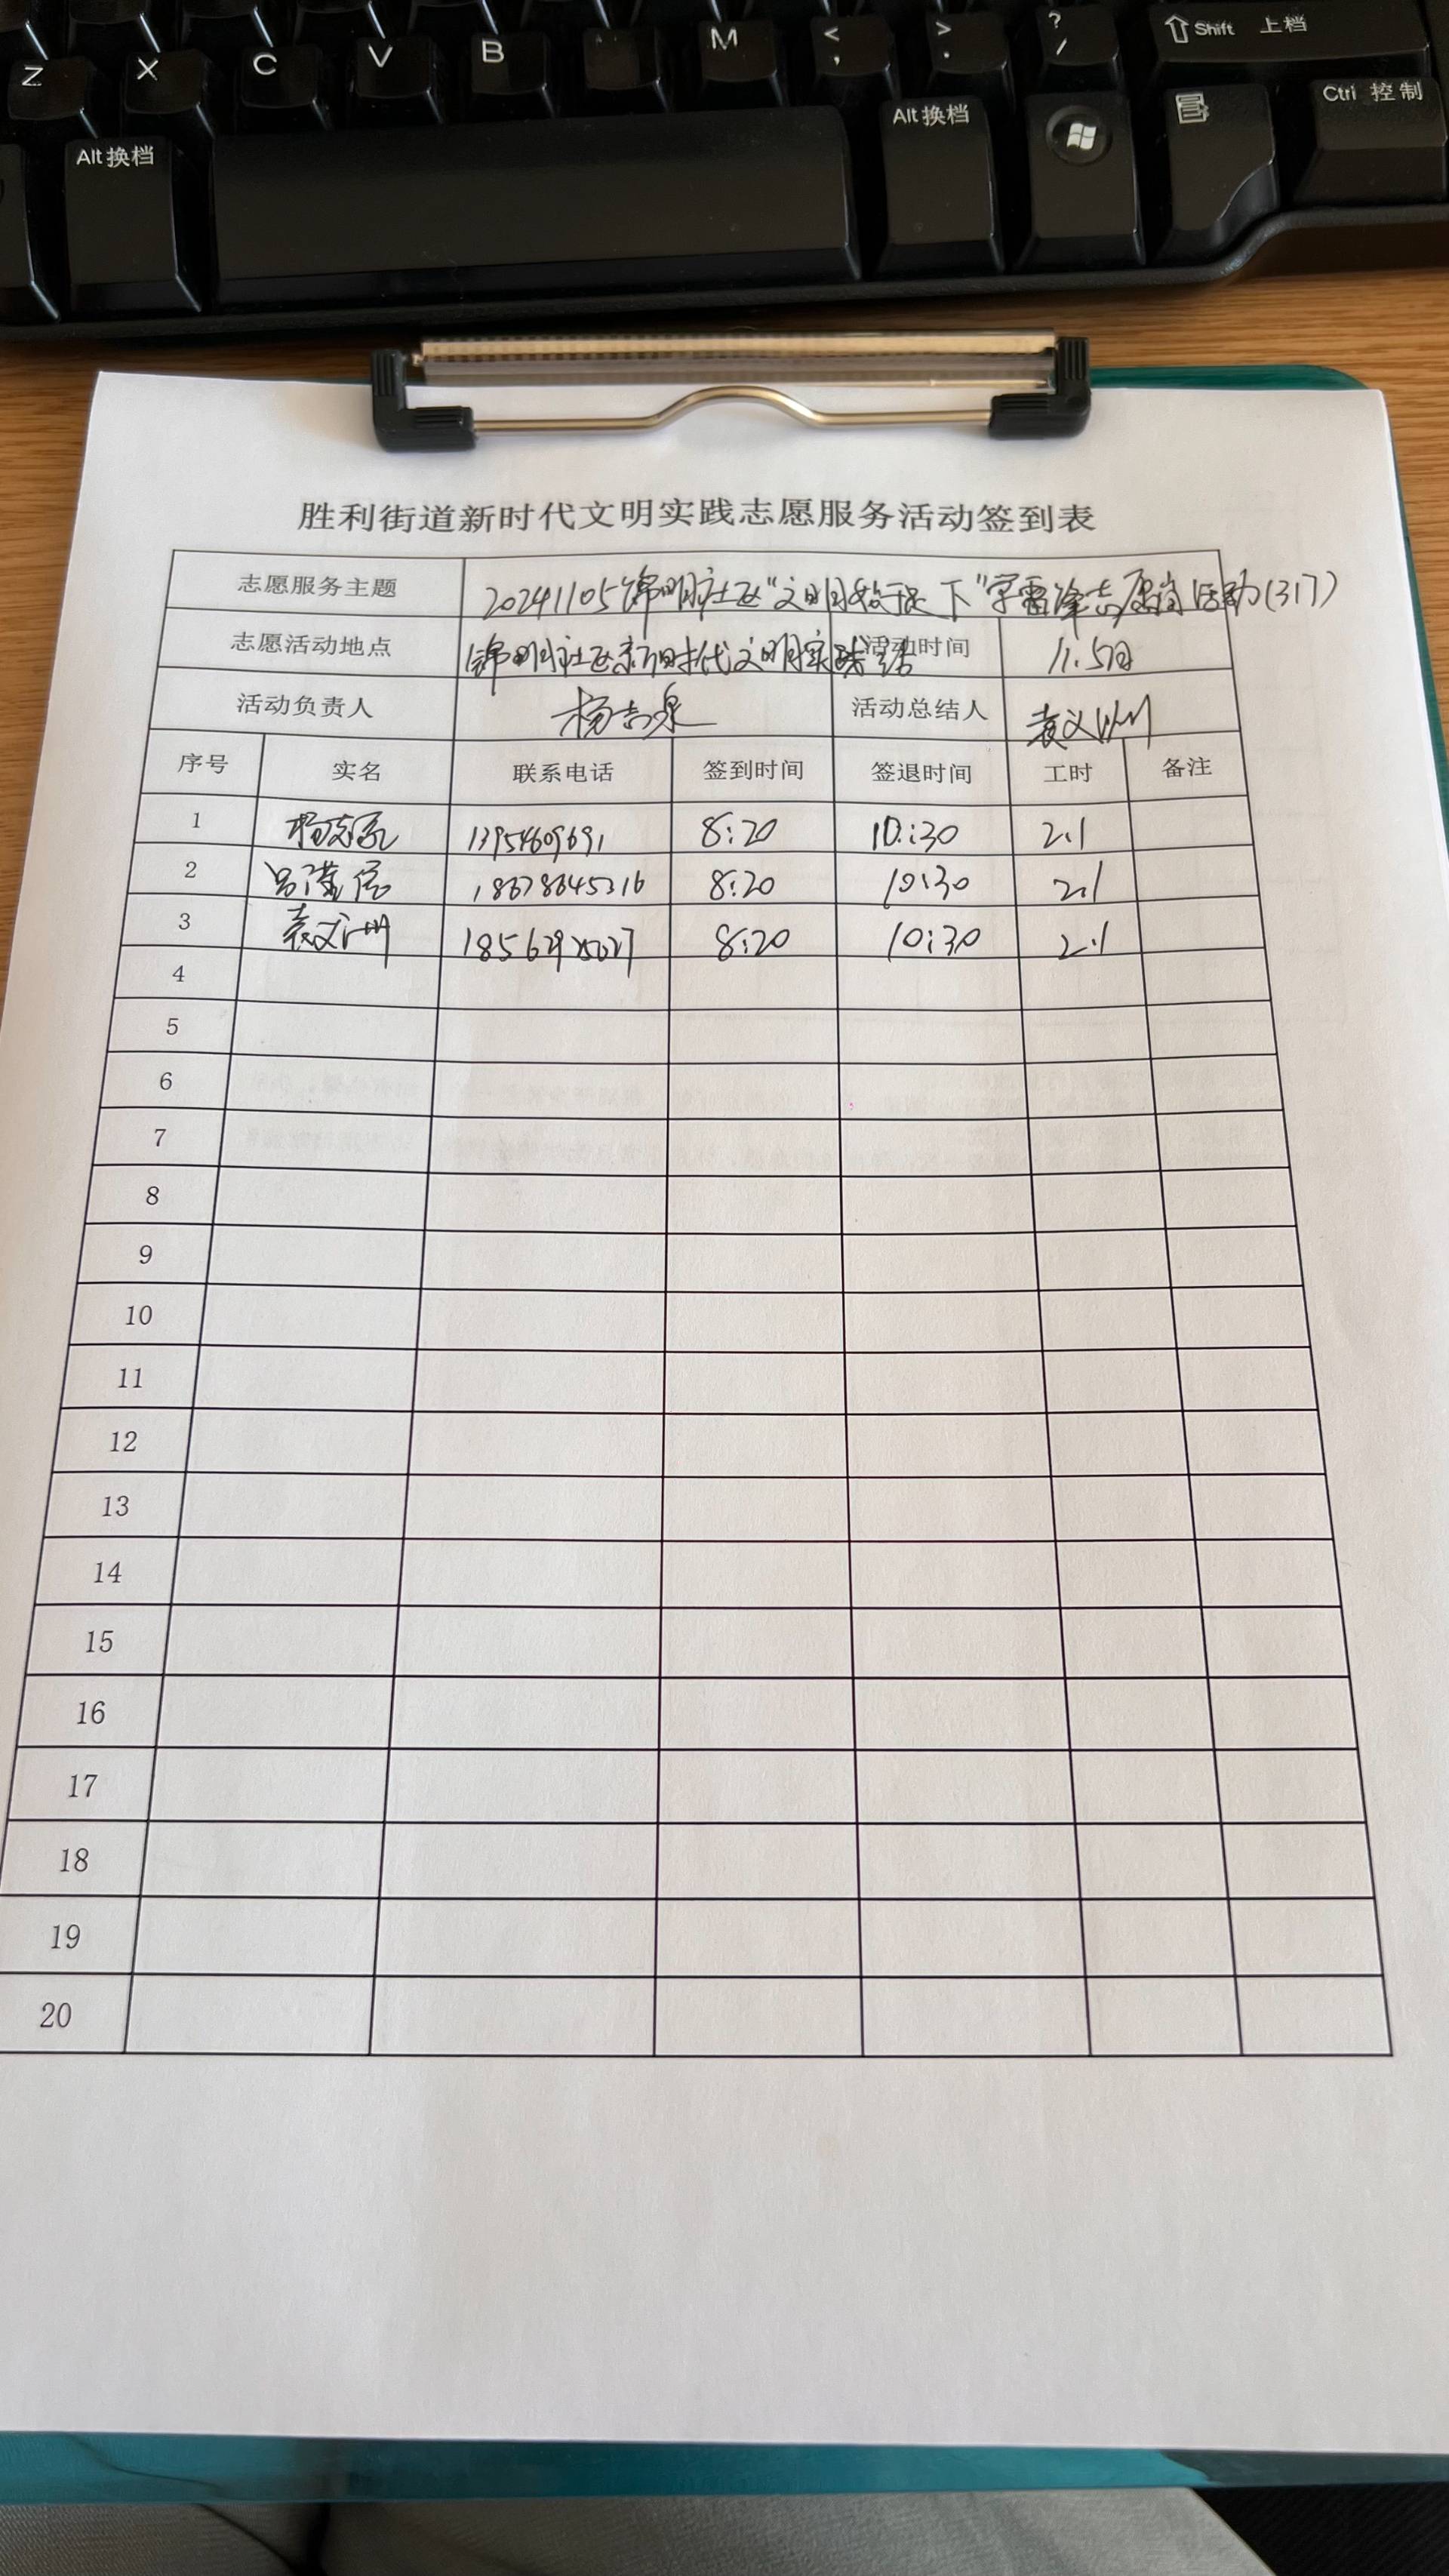 Z X C V B M < , > . ? / Shift 上档
Alt 换档 Alt 换档 Ctrl 控制
胜利街道新时代文明实践志愿服务活动签到表
志愿服务主题 20241105锦明社区"文明始于足下"学雷锋志愿岗活动(317)
志愿活动地点 锦明社区新时代文明实践站 活动时间 11.5日
活动负责人 杨志泉 活动总结人 袁义州
序号 实名 联系电话 签到时间 签退时间 工时 备注
1 1395469691 8:20 10:30 2.1
2 18678645316 8:20 10:30 2.1
3 袁义州 8:20 10:30 2.1
4
5
6
7
8
9
10
11
12
13
14
15
16
17
18
19
20